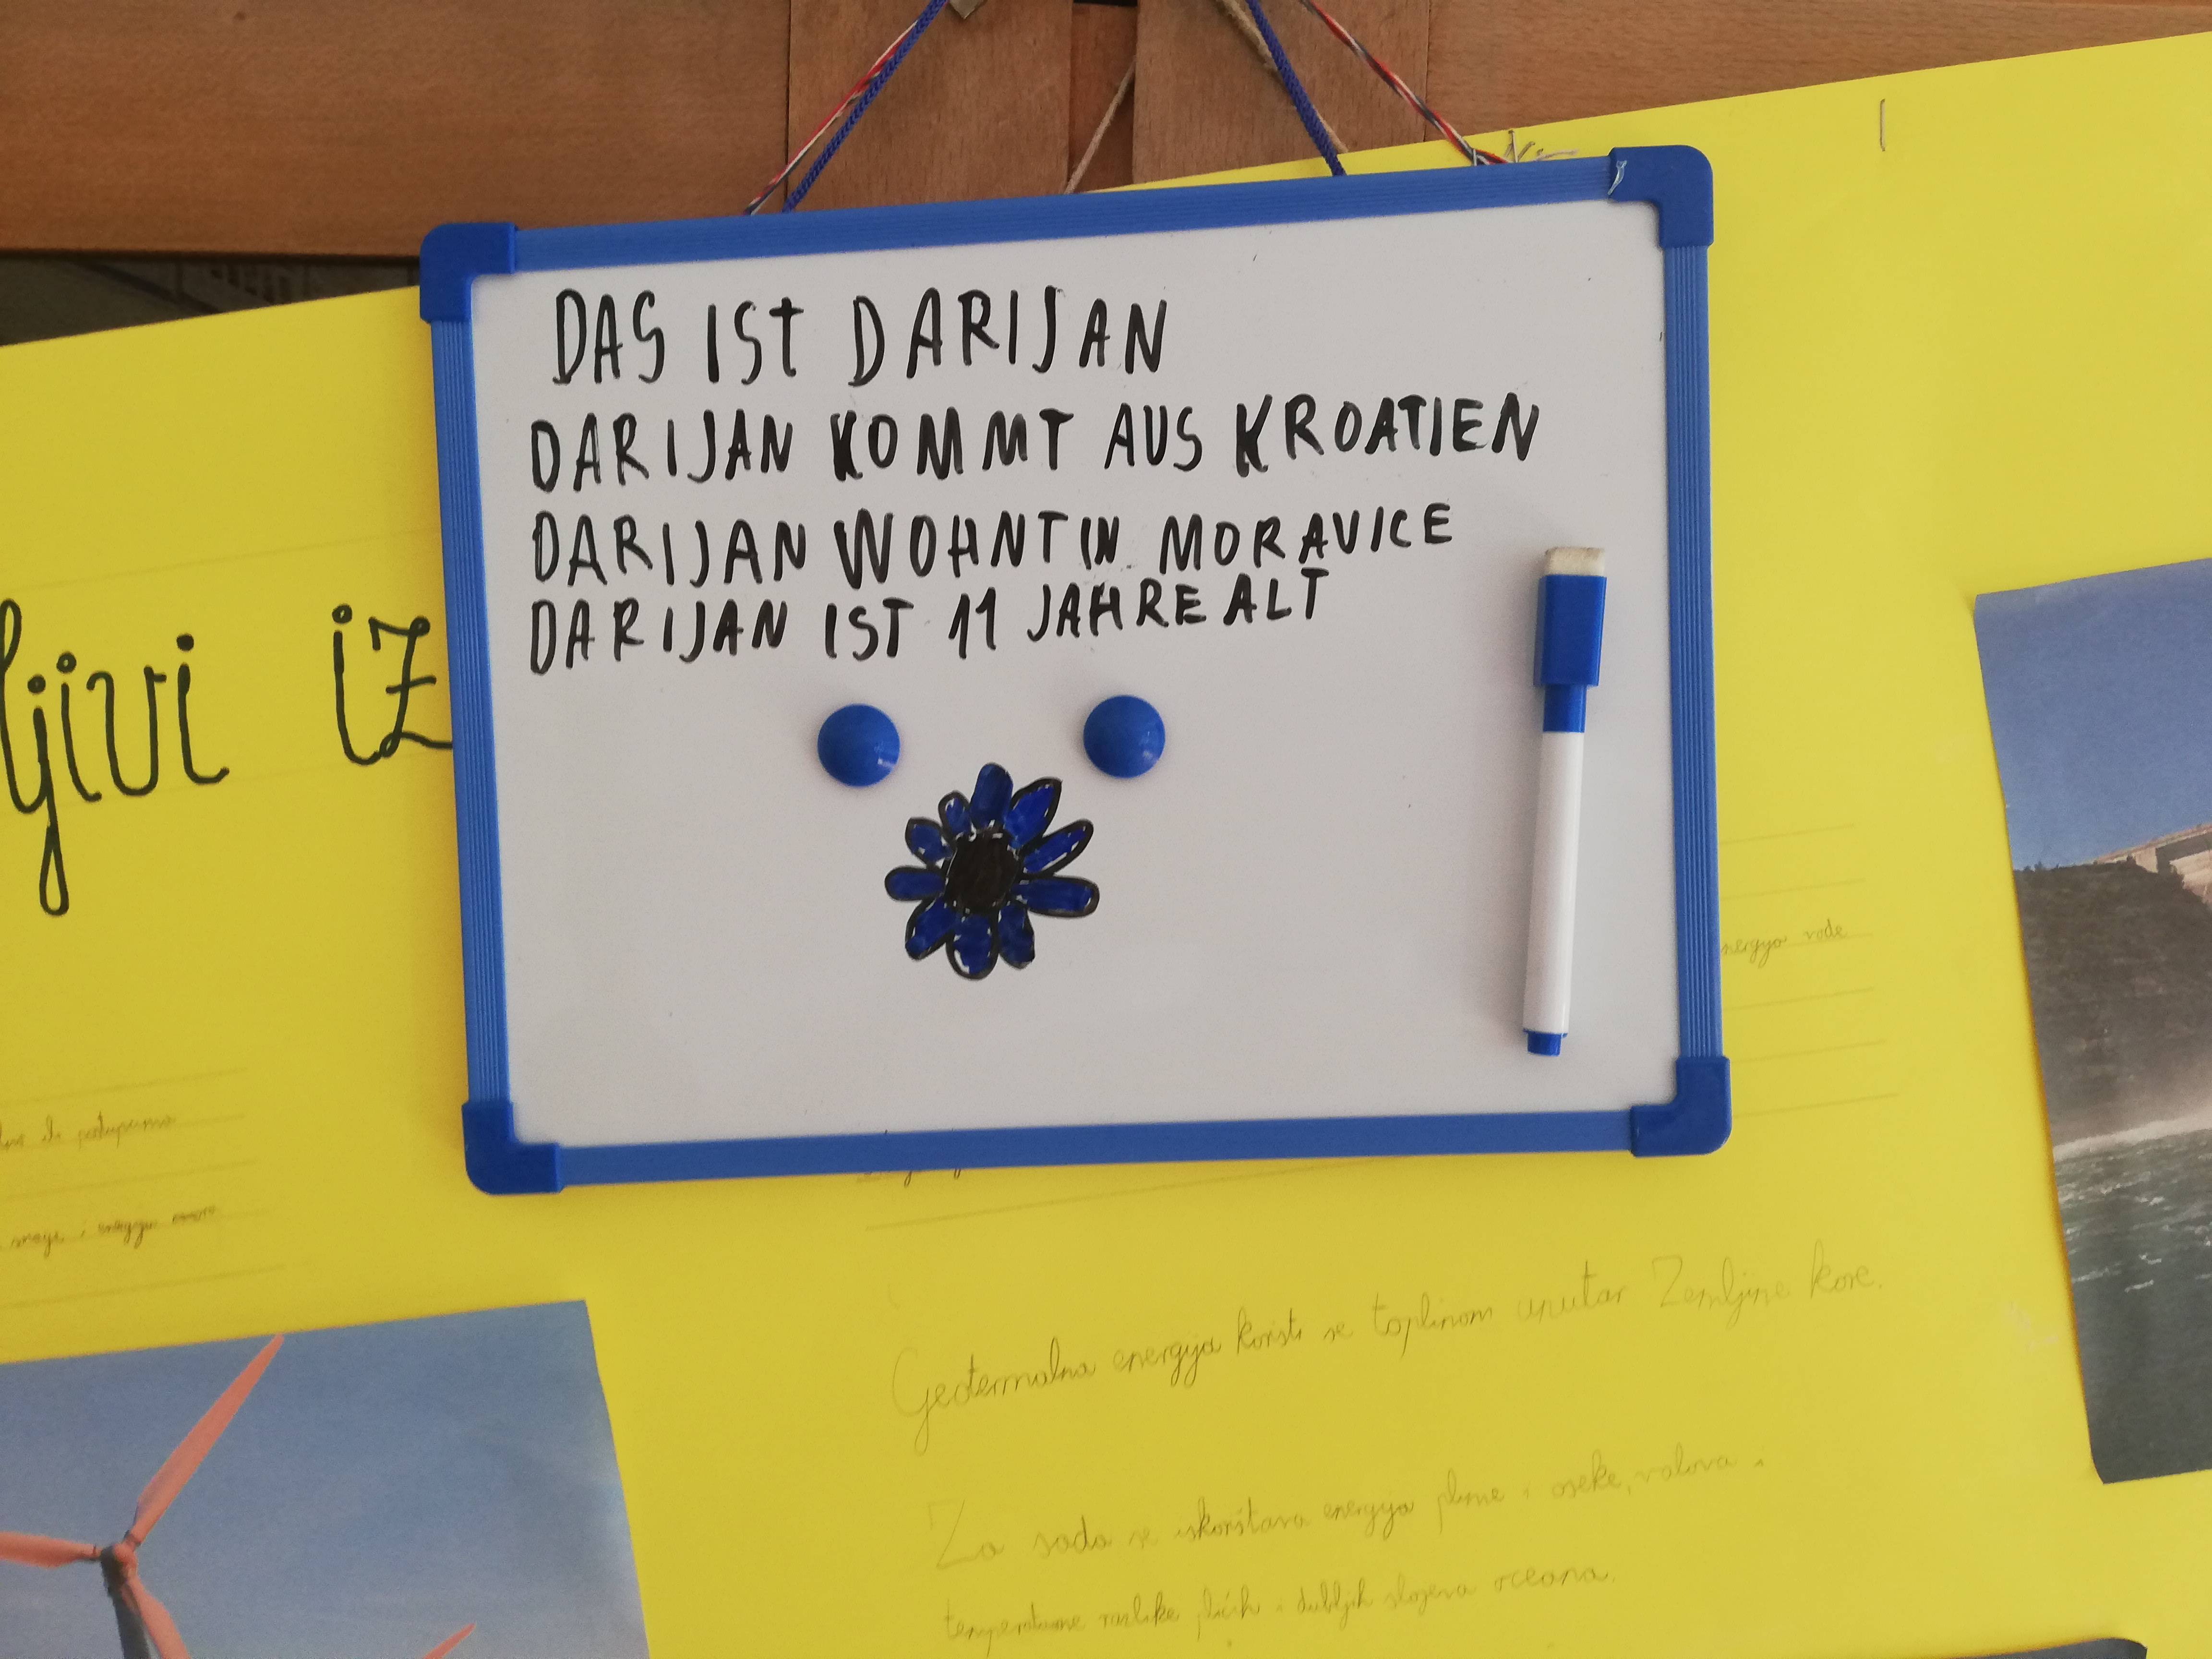 DAS IST DARIJAN
DARIJAN KOMMT AUS KROATIEN
DARIJAN WOHNT IN MORAVICE
DARIJAN IST 11 JAHRE ALT
ljivi iz
energija vode
i energiju
Geotermalna energija koristi se toplinom unutar Zemljine kore.
Za sada se iskorištava energija plime i oseke, valova i
temperaturne razlike plićih i dubljih slojeva oceana.